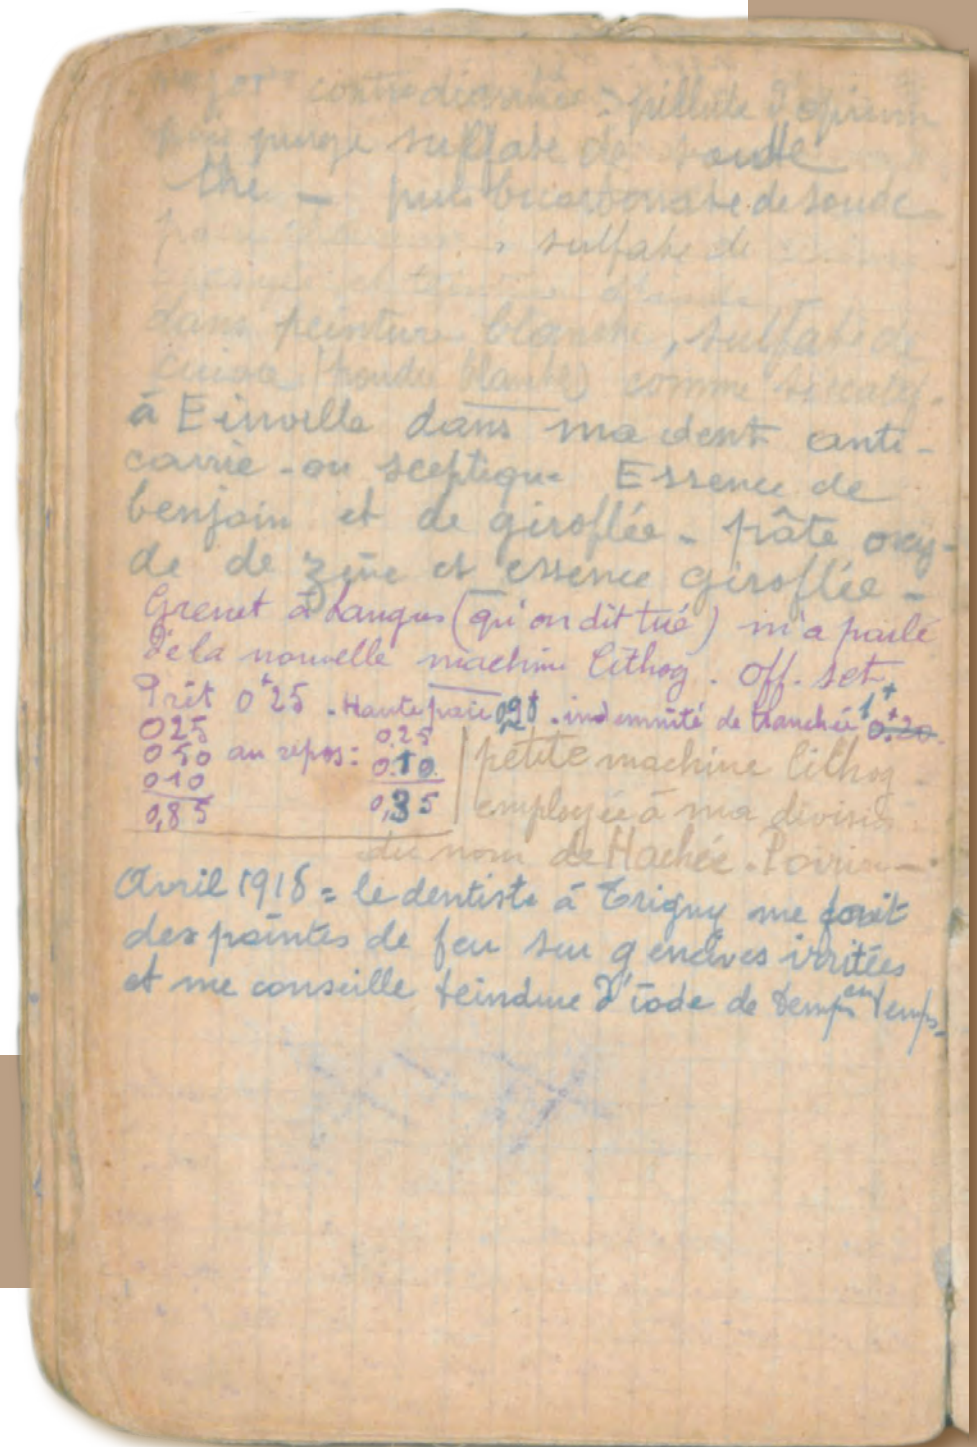 contre diarrhée = pillule d'opium
puis purge sulfate de soude
thé - puis bicarbonate de soude
sulfate de
dans peinture blanche, sulfate de
cuivre (poudre blanche) comme siccatif.
à Einville dans ma dent anti-
carrie - ou sceptique Essence de
benjoin et de giroflée - pâte oxy-
de de zinc et essence giroflée -
Grenet à Langres (qu'on dit tué) m'a parlé
de la nouvelle machine lithog. off. set.
Prêt 0f25 . Haute paie . indemnité de tranchée 1f 0f20
025 0.25
050 au repos : 0.10
010 0,35
0,85
petite machine lithog -
employée à ma division
du nom de Hachée . Poirier -
Avril 1918 = le dentiste à Trigny me fait
des pointes de feu sur gencives irritées
et me conseille teindure d'iode de temps en temps.